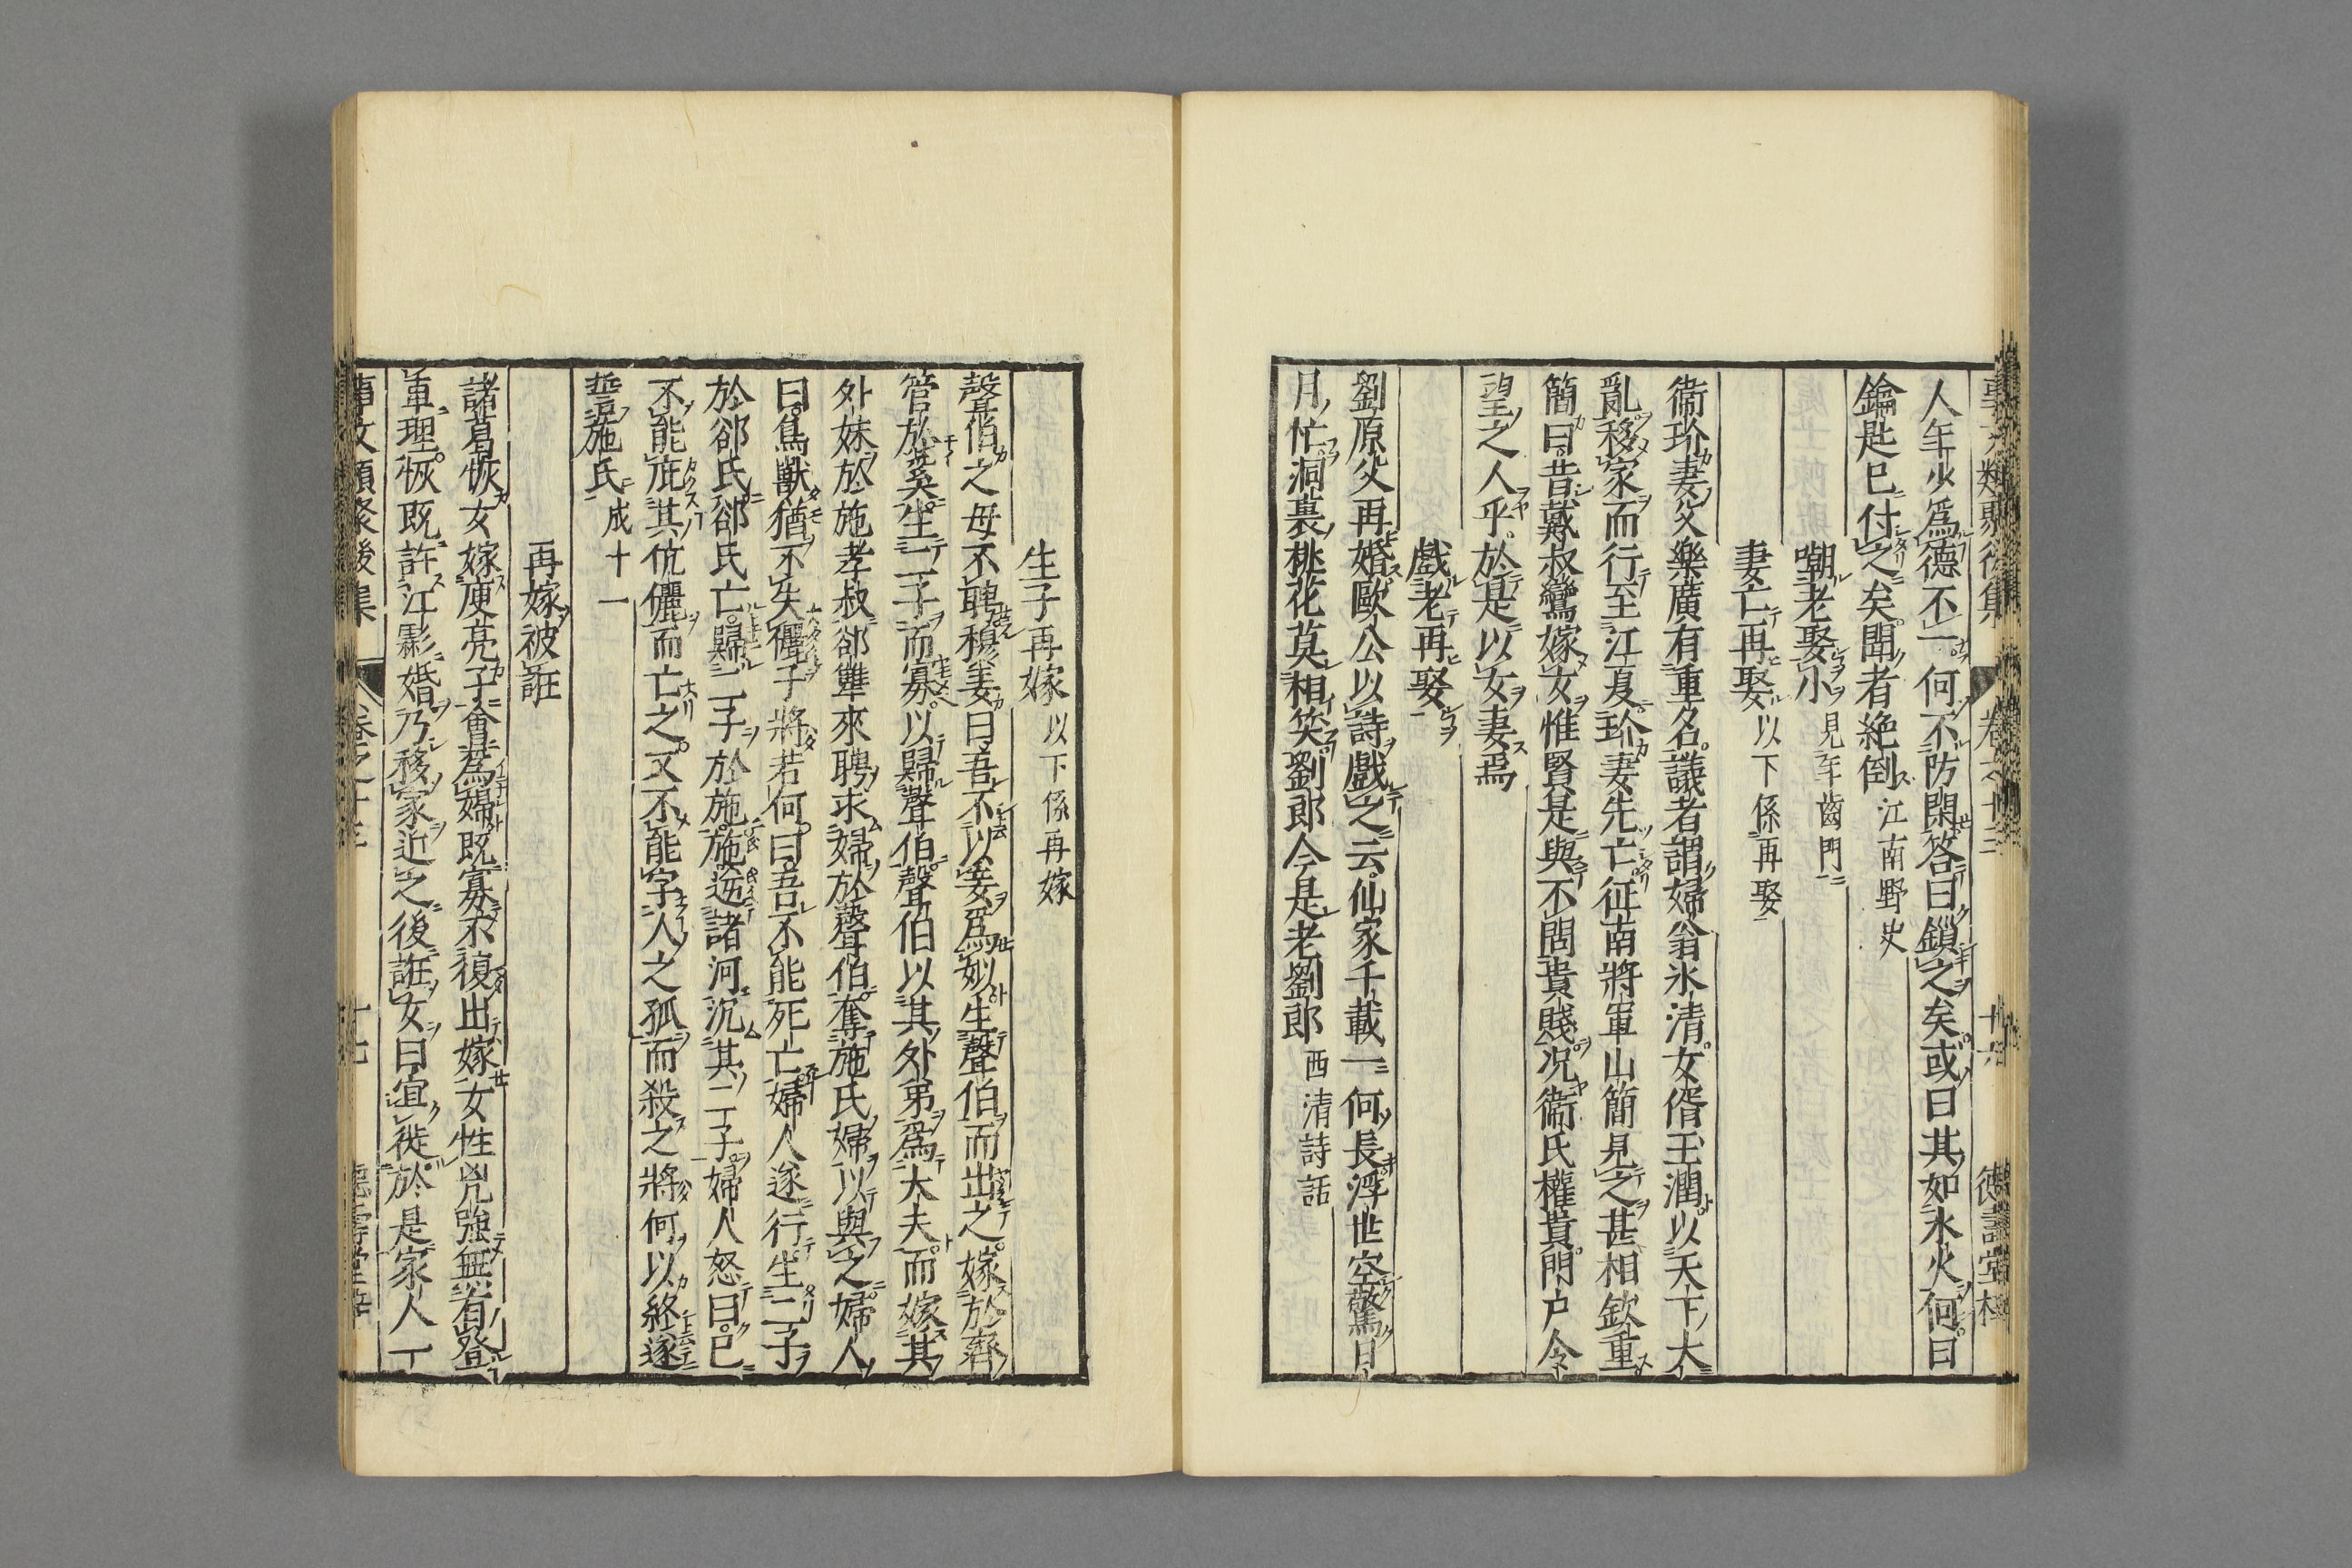 人年少爲德不一何不防閑答曰鎻之矣或曰其如水火何曰
鑰匙已付之矣聞者絶倒 江南野史
嘲老娶小 見年齒門
妻亡再娶 以下係再娶
衞玠妻父樂廣有重名議者謂婦翁氷清女偦王潤以天下大
亂移家而行至江夏玠妻先亡征南將軍山簡見之甚相欽重
簡曰昔戴叔鸞嫁女惟賢是與不問貴賤况衞氏權貴門户令
望之人乎於是以女妻焉
戲老再娶
劉原父再婚歐公以詩戲之云仙家千載一何長浮世空驚日
月忙洞裏桃花莫相笑劉郎今是老劉郎 西清詩話
生子再嫁 以下係再嫁
聲伯之母不聘穆姜曰吾不以妾爲姒生聲伯而出之嫁於齊
管於奚生二子而寡以歸聲伯聲伯以其外弟爲大夫而嫁其
外妹於施孝叔郤犨來聘求婦於聲伯聲伯奪施氏婦以與之婦人
曰鳥獸猶不失儷子將若何曰吾不能死亡婦人遂行生二子
於郤氏郤氏亡歸二子於施施逆諸河沉其二子婦人怒曰已
不能庇其伉儷而亡之又不能字人之孤而殺之將何以終遂
誓施氏 成十一
再嫁被誑
諸葛恢女嫁庾亮子會爲婦既寡不復出嫁女性兇強無有登
車理恢既許江彪婚乃移家近之後誑女曰宜徙於是家人一
事文類聚後集 卷之十三 十七